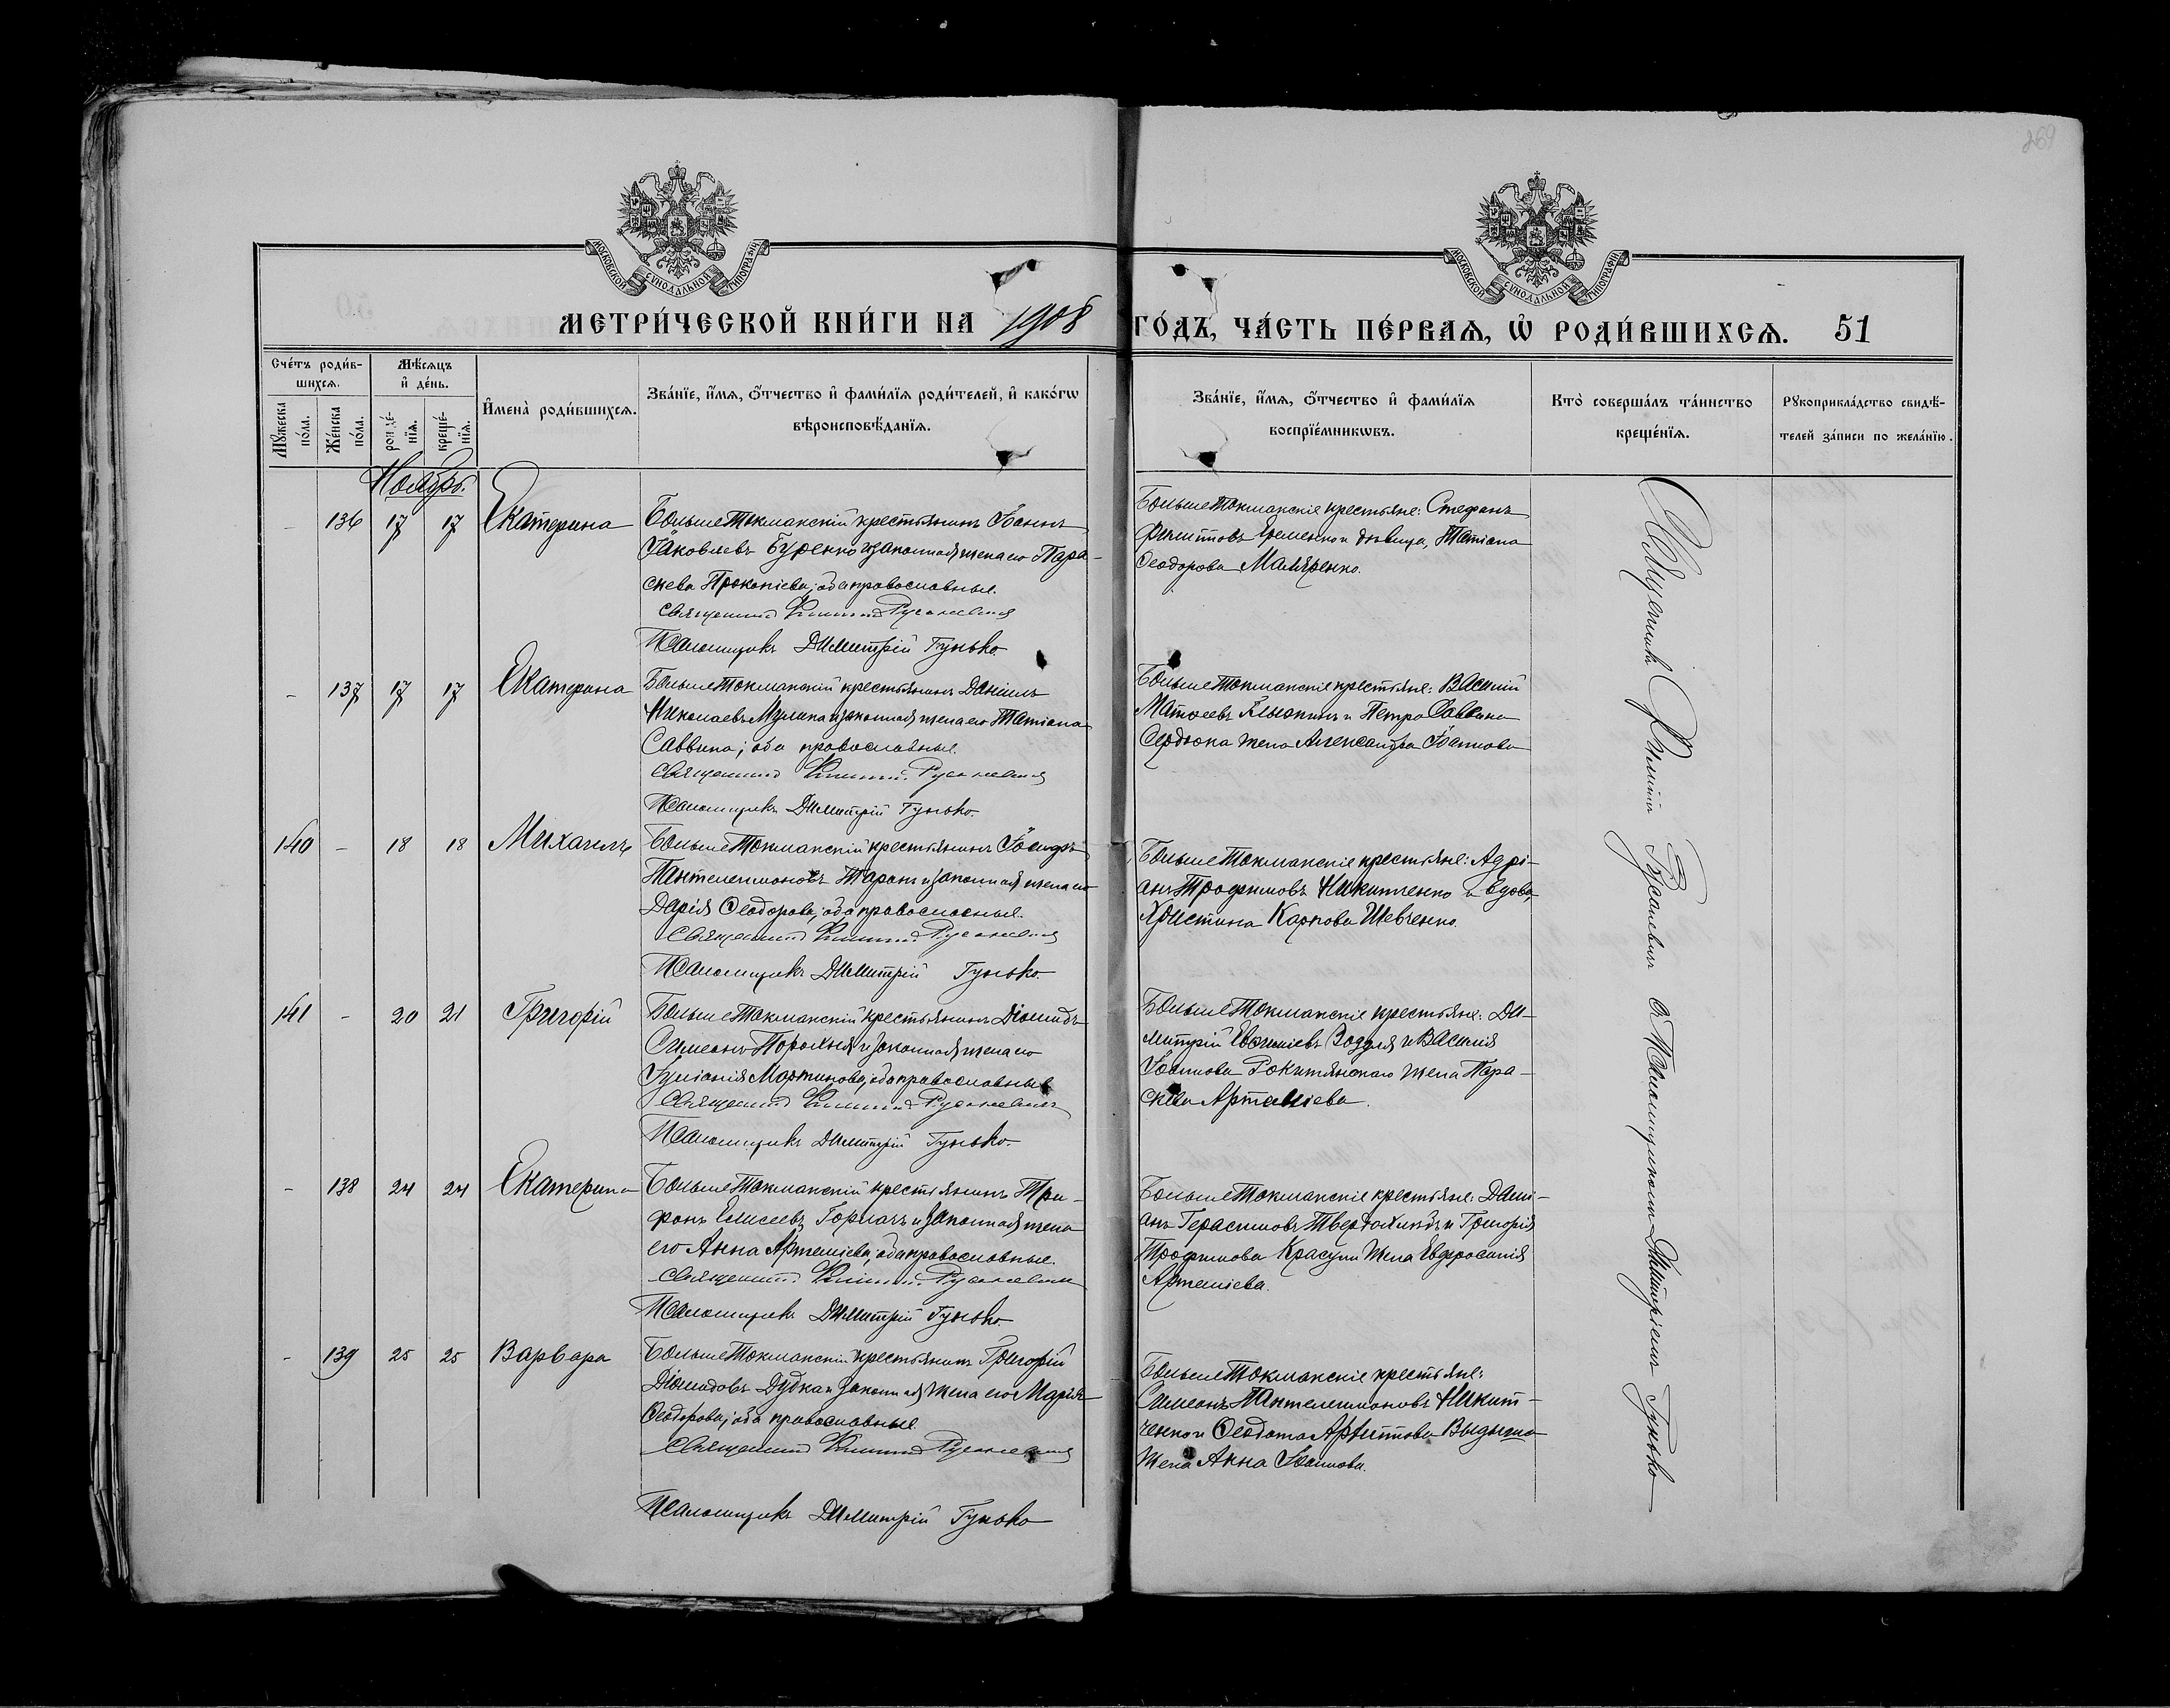 269
МОСКОВСКОЙ СѴНОДАЛЬНОЙ ТИПОГРАФІИ
МОСКОВСКОЙ СѴНОДАЛЬНОЙ ТИПОГРАФІИ
МЕТРИ́ЧЕСКОЙ КНИ́ГИ НА 1908 ГО́ДЪ, ЧА́СТЬ ПЕ́РВАѦ, Ѡ҆ РОДИ́ВШИХСѦ. 51
Счéтъ роди́в-
шихсѧ.
Мꙋ́жеска по́ла.
Же́нска по́ла.
Мѣ́сѧцъ
и҆ де́нь.
рожде́-
нїѧ.
креще́-
нїѧ.
И҆мена̀ роди́вшихсѧ.
Зва́нїе, и҆́мѧ, ѻ҆́тчество и҆ фами́лїѧ роди́телей, и҆ како́гѡ
вѣроисповѣ́данїѧ.
Зва́нїе, и҆́мѧ, ѻ҆́тчество и҆ фами́лїѧ
воспрїе́мникѡвъ.
Кто̀ соверша́лъ та́инство
креще́нїѧ.
Рꙋкоприкла́дство свидѣ́-
телей за́писи по жела́нїю.
Ноябрь.
- 136 17 17 Екатерина
БольшеТокмакскій крестьянинъ Іоаннъ
Іаковлевъ Буренко и законная жена его Пара-
скева Прокопіева; оба православные.
Священникъ Филиппъ Русаневичъ
Псаломщикъ Димитрій Гунько.
БольшеТокмакскіе крестьяне: Стефанъ
Филипповъ Еременко и дѣвица, Татіана
Ѳеодорова Маляренко.
- 137 17 17 Екатерина
БольшеТокмакскій крестьянинъ Даніилъ
Николаевъ Мулика и законная жена его Татіана
Саввина; оба православные.
Священникъ Филиппъ Русаневичъ
Псаломщикъ Димитрій Гунько.
БольшеТокмакскіе крестьяне: Василій
Матѳеевъ и Петра Саввина
Сердюка жена Александра Іоаннова
140 - 18 18 Михаилъ
БольшеТокмакскій крестьянинъ Іосифъ
Пантелеимоновъ Таранъ и законная жена его
Дарія Ѳеодорова; оба православные.
Священникъ Филиппъ Русаневичъ
Псаломщикъ Димитрій Гунько.
БольшеТокмакскіе крестьяне: Адрі-
анъ Трофимовъ Никитченко и вдова,
Христина Карпова Шевченко.
141 - 20 21 Григорій
БольшеТокмакскій крестьянинъ Діомидъ
Симеонъ Порохня и законная жена его
Іуліанія Мартинова; оба православные
Священникъ Филиппъ Русаневичъ
Псаломщикъ Димитрій Гунько.
БольшеТокмакскіе крестьяне: Ди-
митрій Евѳиміевъ Зозуля и Василія
Іоаннова Рокитянскаго жена Пара-
скева Артеміева.
- 138 24 24 Екатерина
БольшеТокмакскій крестьянинъ Три-
фонъ Елисеевъ Горпачъ и законная жена
его Анна Артеміева; оба православные.
Священникъ Филиппъ Русаневичъ
Псаломщикъ Димитрій Гунько.
БольшеТокмакскіе крестьяне: Дамі-
анъ Герасимовъ Твердохлѣбъ и Григорія
Трофимова Красули жена Евфросинія
Артеміева.
- 139 25 25 Варвара
БольшеТокмакскій крестьянинъ Григорій
Діомидовъ Дудка и законная жена его Марія
Ѳеодорова; оба православные.
Священникъ Филиппъ Русаневичъ
Псаломщикъ Димитрій Гунько
БольшеТокмакскіе крестьяне:
Симеонъ Пантелеимоновъ Никит-
ченко и Ѳеодота жена Анна Іоаннова.
Священникъ Филиппъ Русаневичъ съ Псаломщикомъ Димитріемъ Гунько